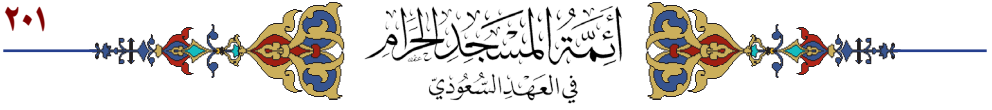 ٢٠١
أَئِمَّةُ المَسْجِدِ الحَرَامِ
في العَهْدِ السُّعُودِيّ